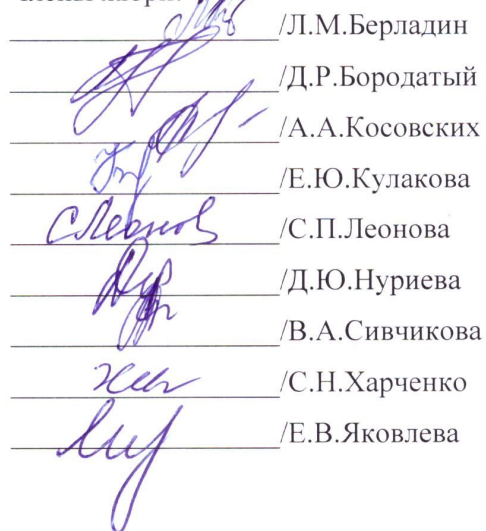 /Л.М.Берладин
/Д.Р.Бородатый
/А.А.Косовских
/Е.Ю.Кулакова
СЛеонов /С.П.Леонова
/Д.Ю.Нуриева
/В.А.Сивчикова
/С.Н.Харченко
/Е.В.Яковлева